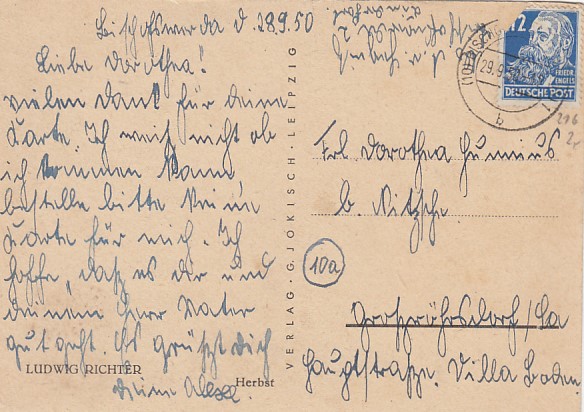 Bischofswerda d. 28.9.50
Liebe Dorothea!
vielen Dank für deine
Karte. Ich weiß nicht ob
ich kommen kann
bestelle bitte keine
Karte für mich. Ich
hoffe, dasz es dir und
deinem Herr Vater
gut geht. Es grüszt Dich
deine
LUDWIG RICHTER
Herbst
VERLAG · G. JOKISCH · LEIPZIG
12
FRIEDR. ENGELS
DEUTSCHE POST
29.9.
b
216
Frl Dorothea
b. Nitzsche
10a
Groszröhrsdorf/Sa
Hauptstrasze. Villa Boden